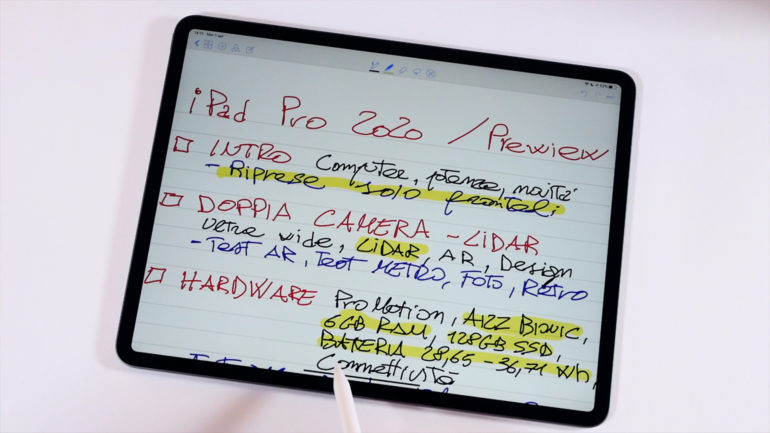 iPad Pro 2020 / Prewiew
INTRO Computer, potenza, novità
- Riprese solo frontali
DOPPIA CAMERA - LiDAR
ultra wide, LiDAR, AR, Design
- Test AR, Test METRO, FOTO, Retro
HARDWARE ProMotion, A12Z Bionic,
6GB RAM, 128GB SSD,
BATTERIA 28,65 - 36,71 Wh,
Connettività